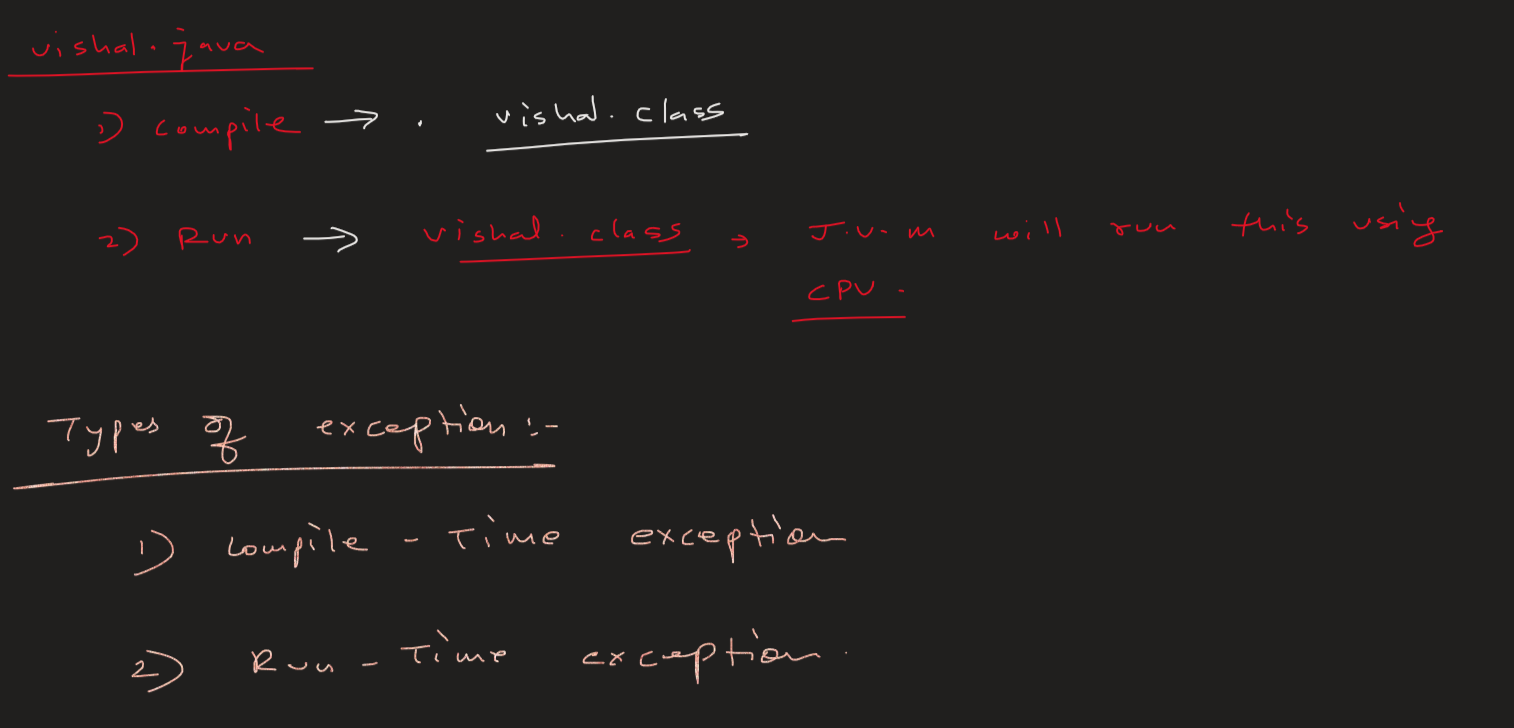 vishal.java
1) compile → . vishal.class
2) Run → vishal.class → J.V.M will run this using
CPU.
Types of exception :-
1) Compile - Time exception
2) Run - Time exception.